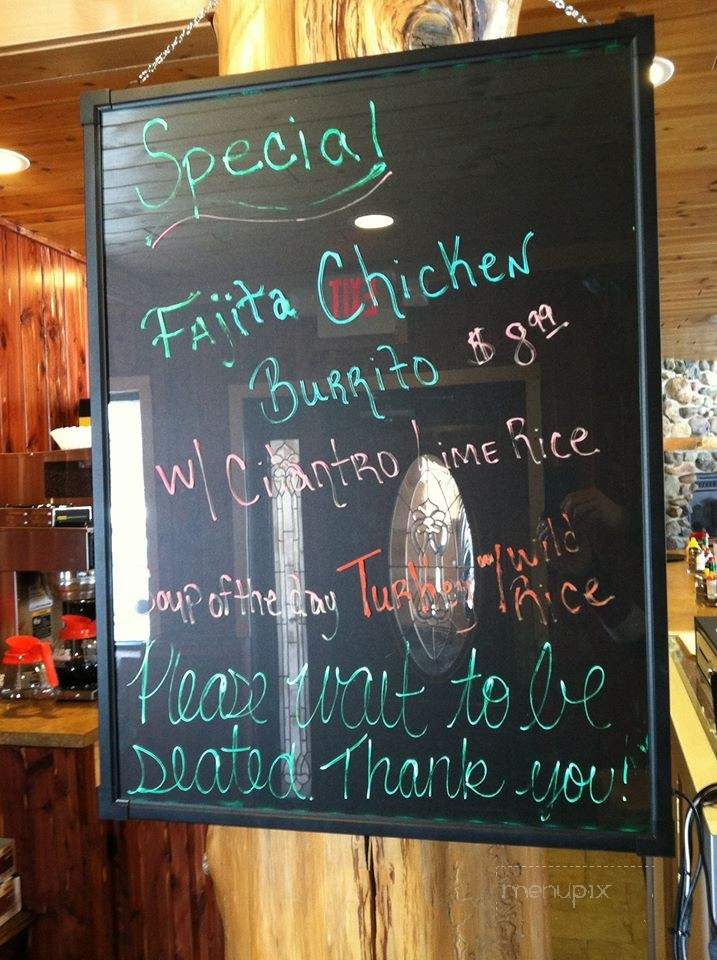 Special
Fajita Chicken
Burrito $8.99
w/ Cilantro Lime Rice
Soup of the day Turkey w/ Wild Rice
Please wait to be
seated. Thank you!
EXIT
menupix